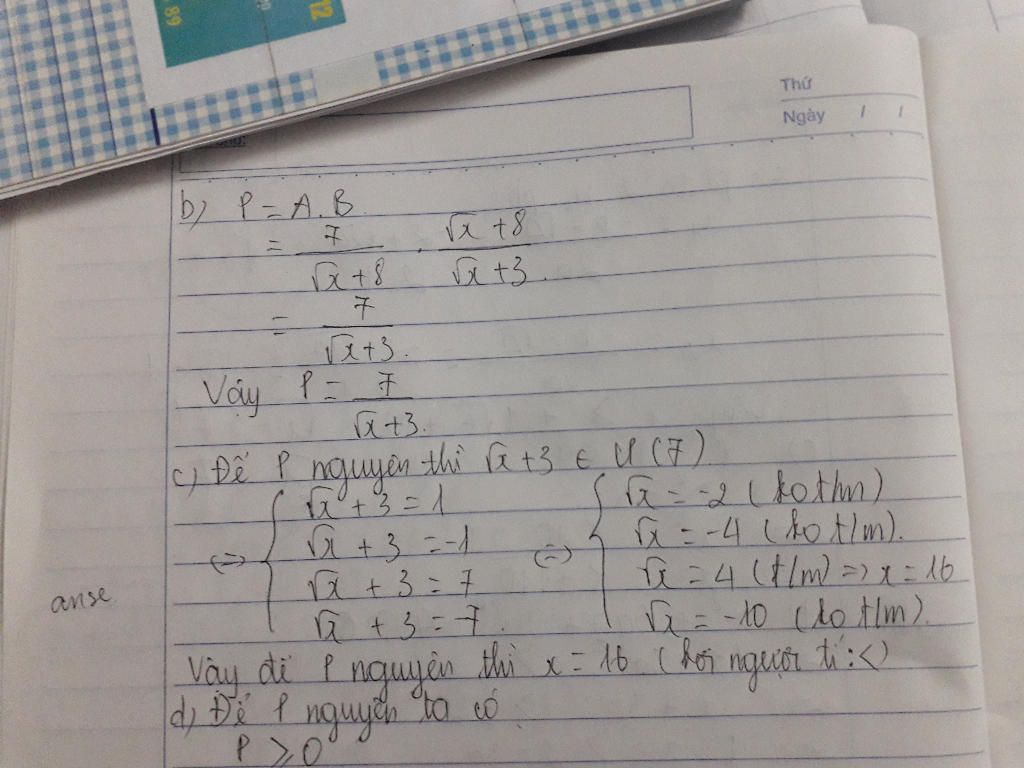 72
89
Thứ
Ngày / /
b) P = A.B
= 7/(√x+8) . (√x+8)/(√x+3).
= 7/(√x+3).
Vậy P = 7/(√x+3).
c) Để P nguyên thì √x+3 ∈ Ư(7)
(=) { √x+3=1 (=) { √x = -2 (ko t/m)
√x + 3 = -1 √x = -4 (ko t/m).
√x + 3 = 7 √x = 4 (t/m) => x = 16
√x + 3 = -7. √x = -10 (ko t/m).
anse
Vậy để P nguyên thì x = 16 (hơi ngượi tí :<)
d) Để P nguyên ta có
P ⩾ 0